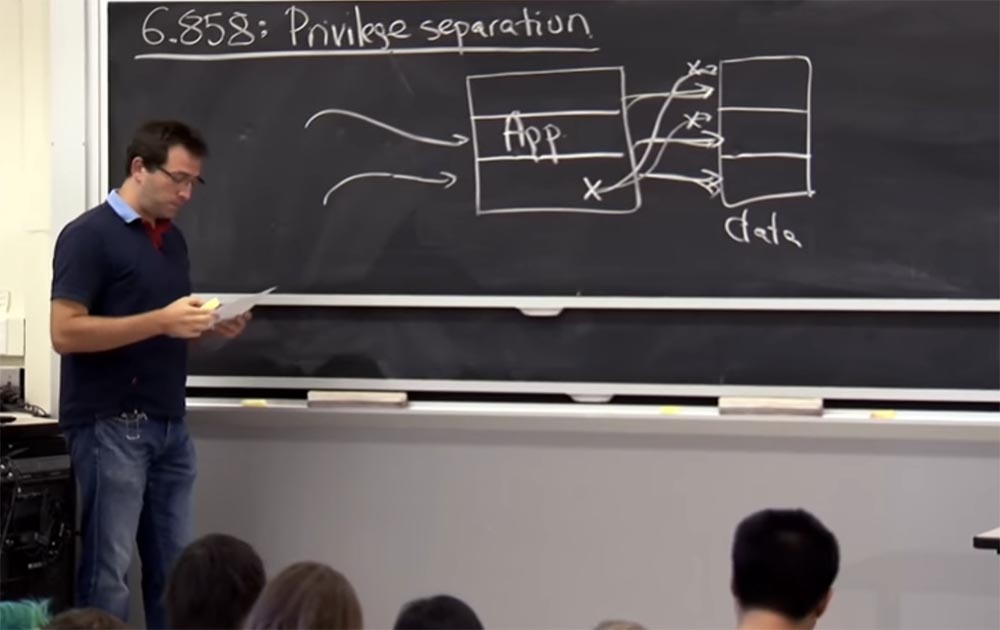 6.858: Privilege separation
App
data